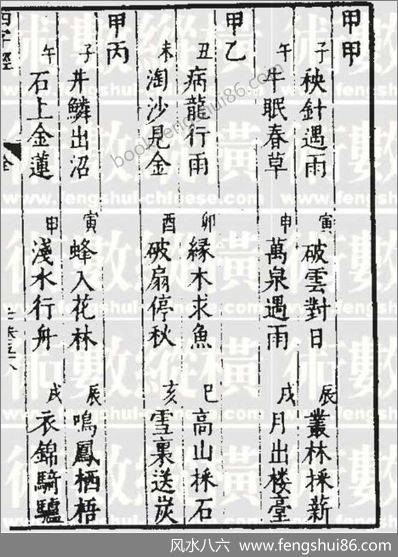 甲甲
子 秧針遇雨 寅 破雲對日 辰 叢林採薪
午 牛眠春草 申 萬泉遇雨 戌 月出楼臺
甲乙
丑 病龍行雨 卯 緣木求魚 巳 高山採石
未 淘沙見金 酉 破扇停秋 亥 雪裏送炭
甲丙
子 井鱗出沼 寅 蜂入花林 辰 鳴鳳栖梧
午 石上金蓮 申 淺水行舟 戌 衣錦騎驢
字經
book.fengshui86.com
術數縱橫
www.fengshui-chinese.com
风水八六 www.fengshui86.com